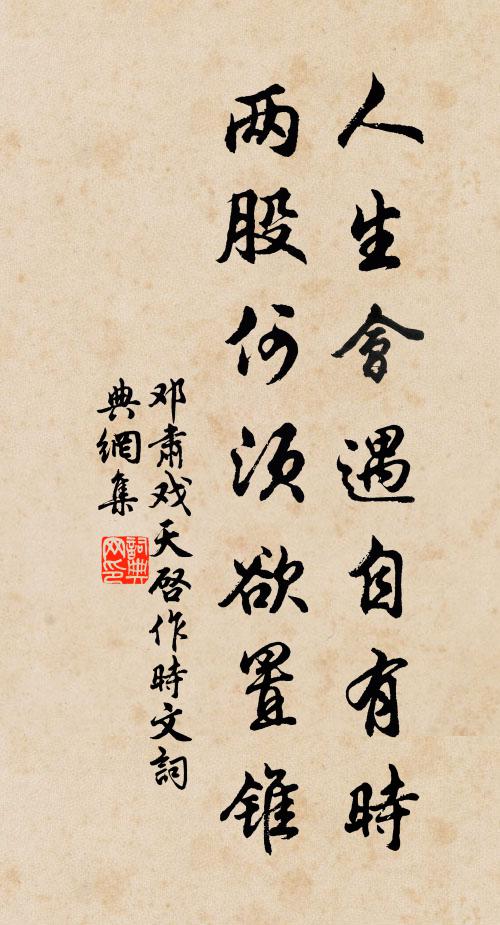 人生會遇自有時
两股何須欲置錐
邓肅戏天启作時文詞
典網集
詞典
网印